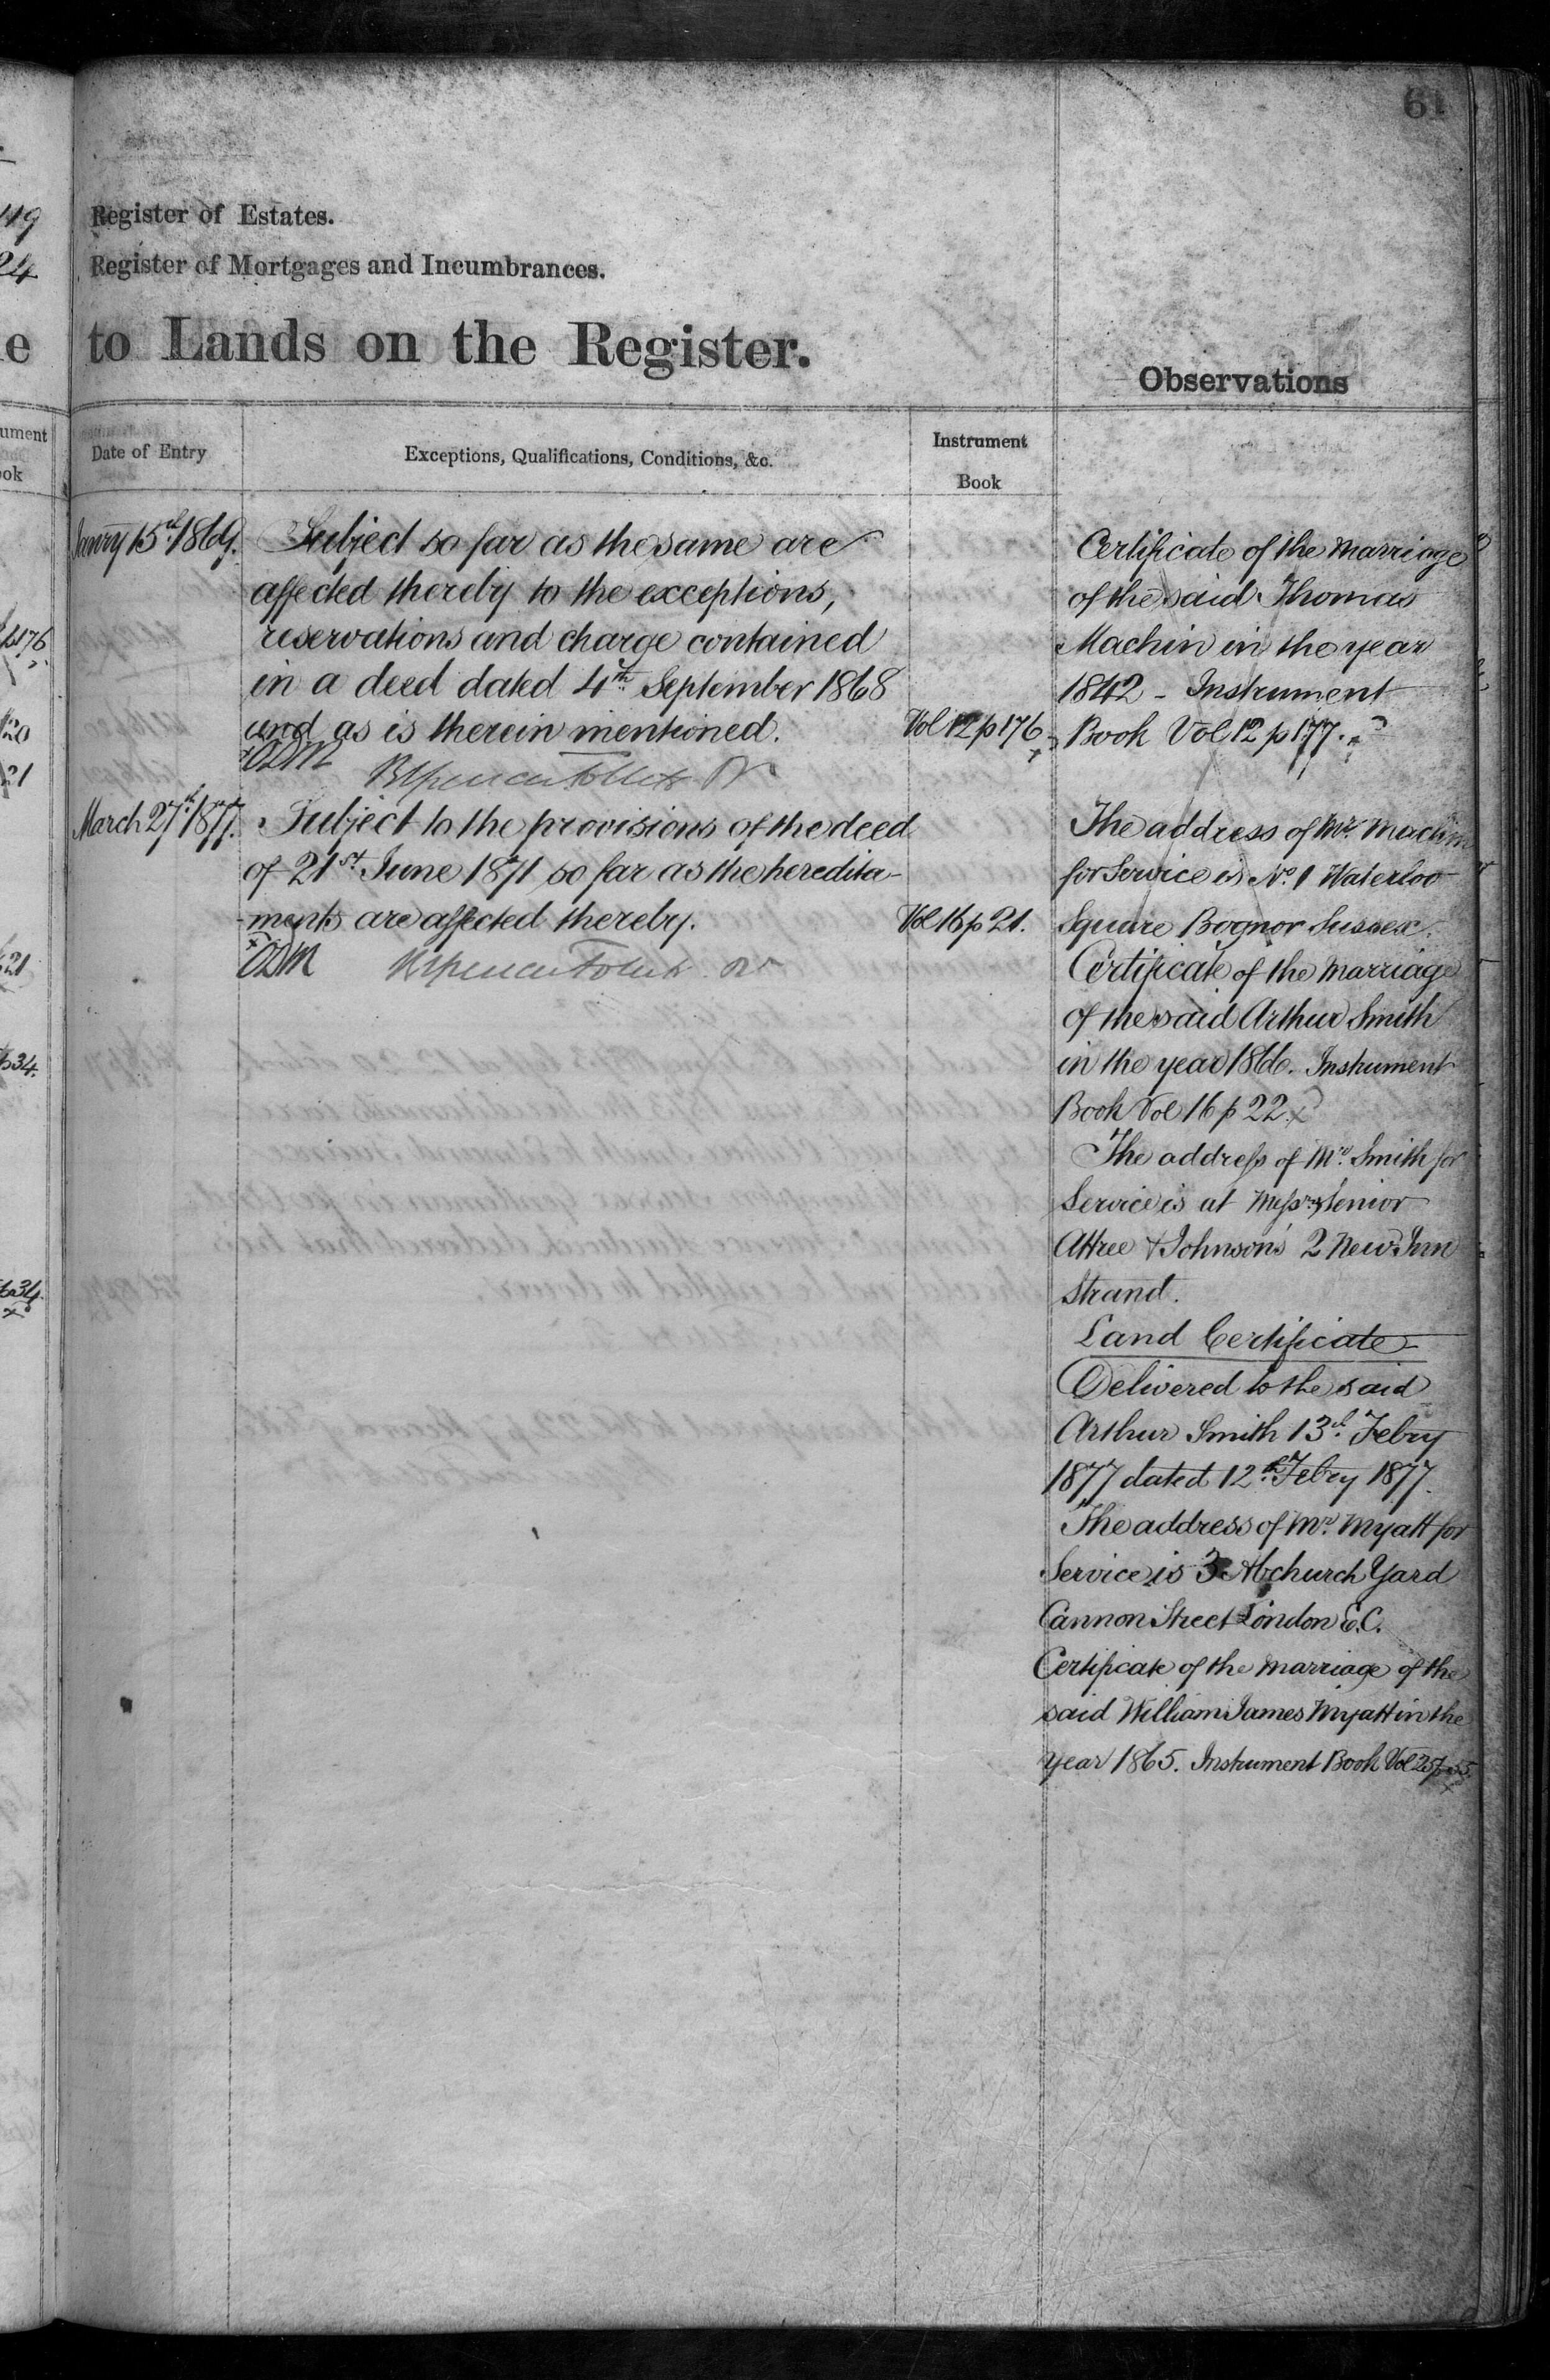 61
Register of Estates.
Register of Mortgages and Incumbrances.
to Lands on the Register.
Observations
Date of Entry
Exceptions, Qualifications, Conditions, &c.
Instrument
Book
Janry 15th 1869.
Subject so far as the same are
affected thereby to the exceptions,
reservations and charge contained
in a deed dated 4th September 1868
and as is therein mentioned.
Vol 12 p 176
ODM
March 27th 1877.
Subject to the provisions of the deed
of 21st June 1871 so far as the heredita-
-ments are affected thereby.
Vol 16 p 21.
ODM
Certificate of the Marriage
of the said Thomas
Machin in the year
1842 - Instrument
Book Vol 12 p 177.
The address of Mr. Machin
for Service is No. 1 Waterloo
Square Bognor Sussex.
Certificate of the Marriage
of the said Arthur Smith
in the year 1866. Instrument
Book Vol 16 p 22
The address of Mr. Smith for
Service is at Messrs Senior
Attree & Johnson's 2 New Inn
Strand.
Land Certificate
Delivered to the said
Arthur Smith 13th Febry
1877 dated 12th Febry 1877.
The address of Mr. Myatt for
Service is 3 Abchurch Yard
Cannon Street London E.C.
Certificate of the Marriage of the
said William James Myatt in the
year 1865. Instrument Book Vol 25